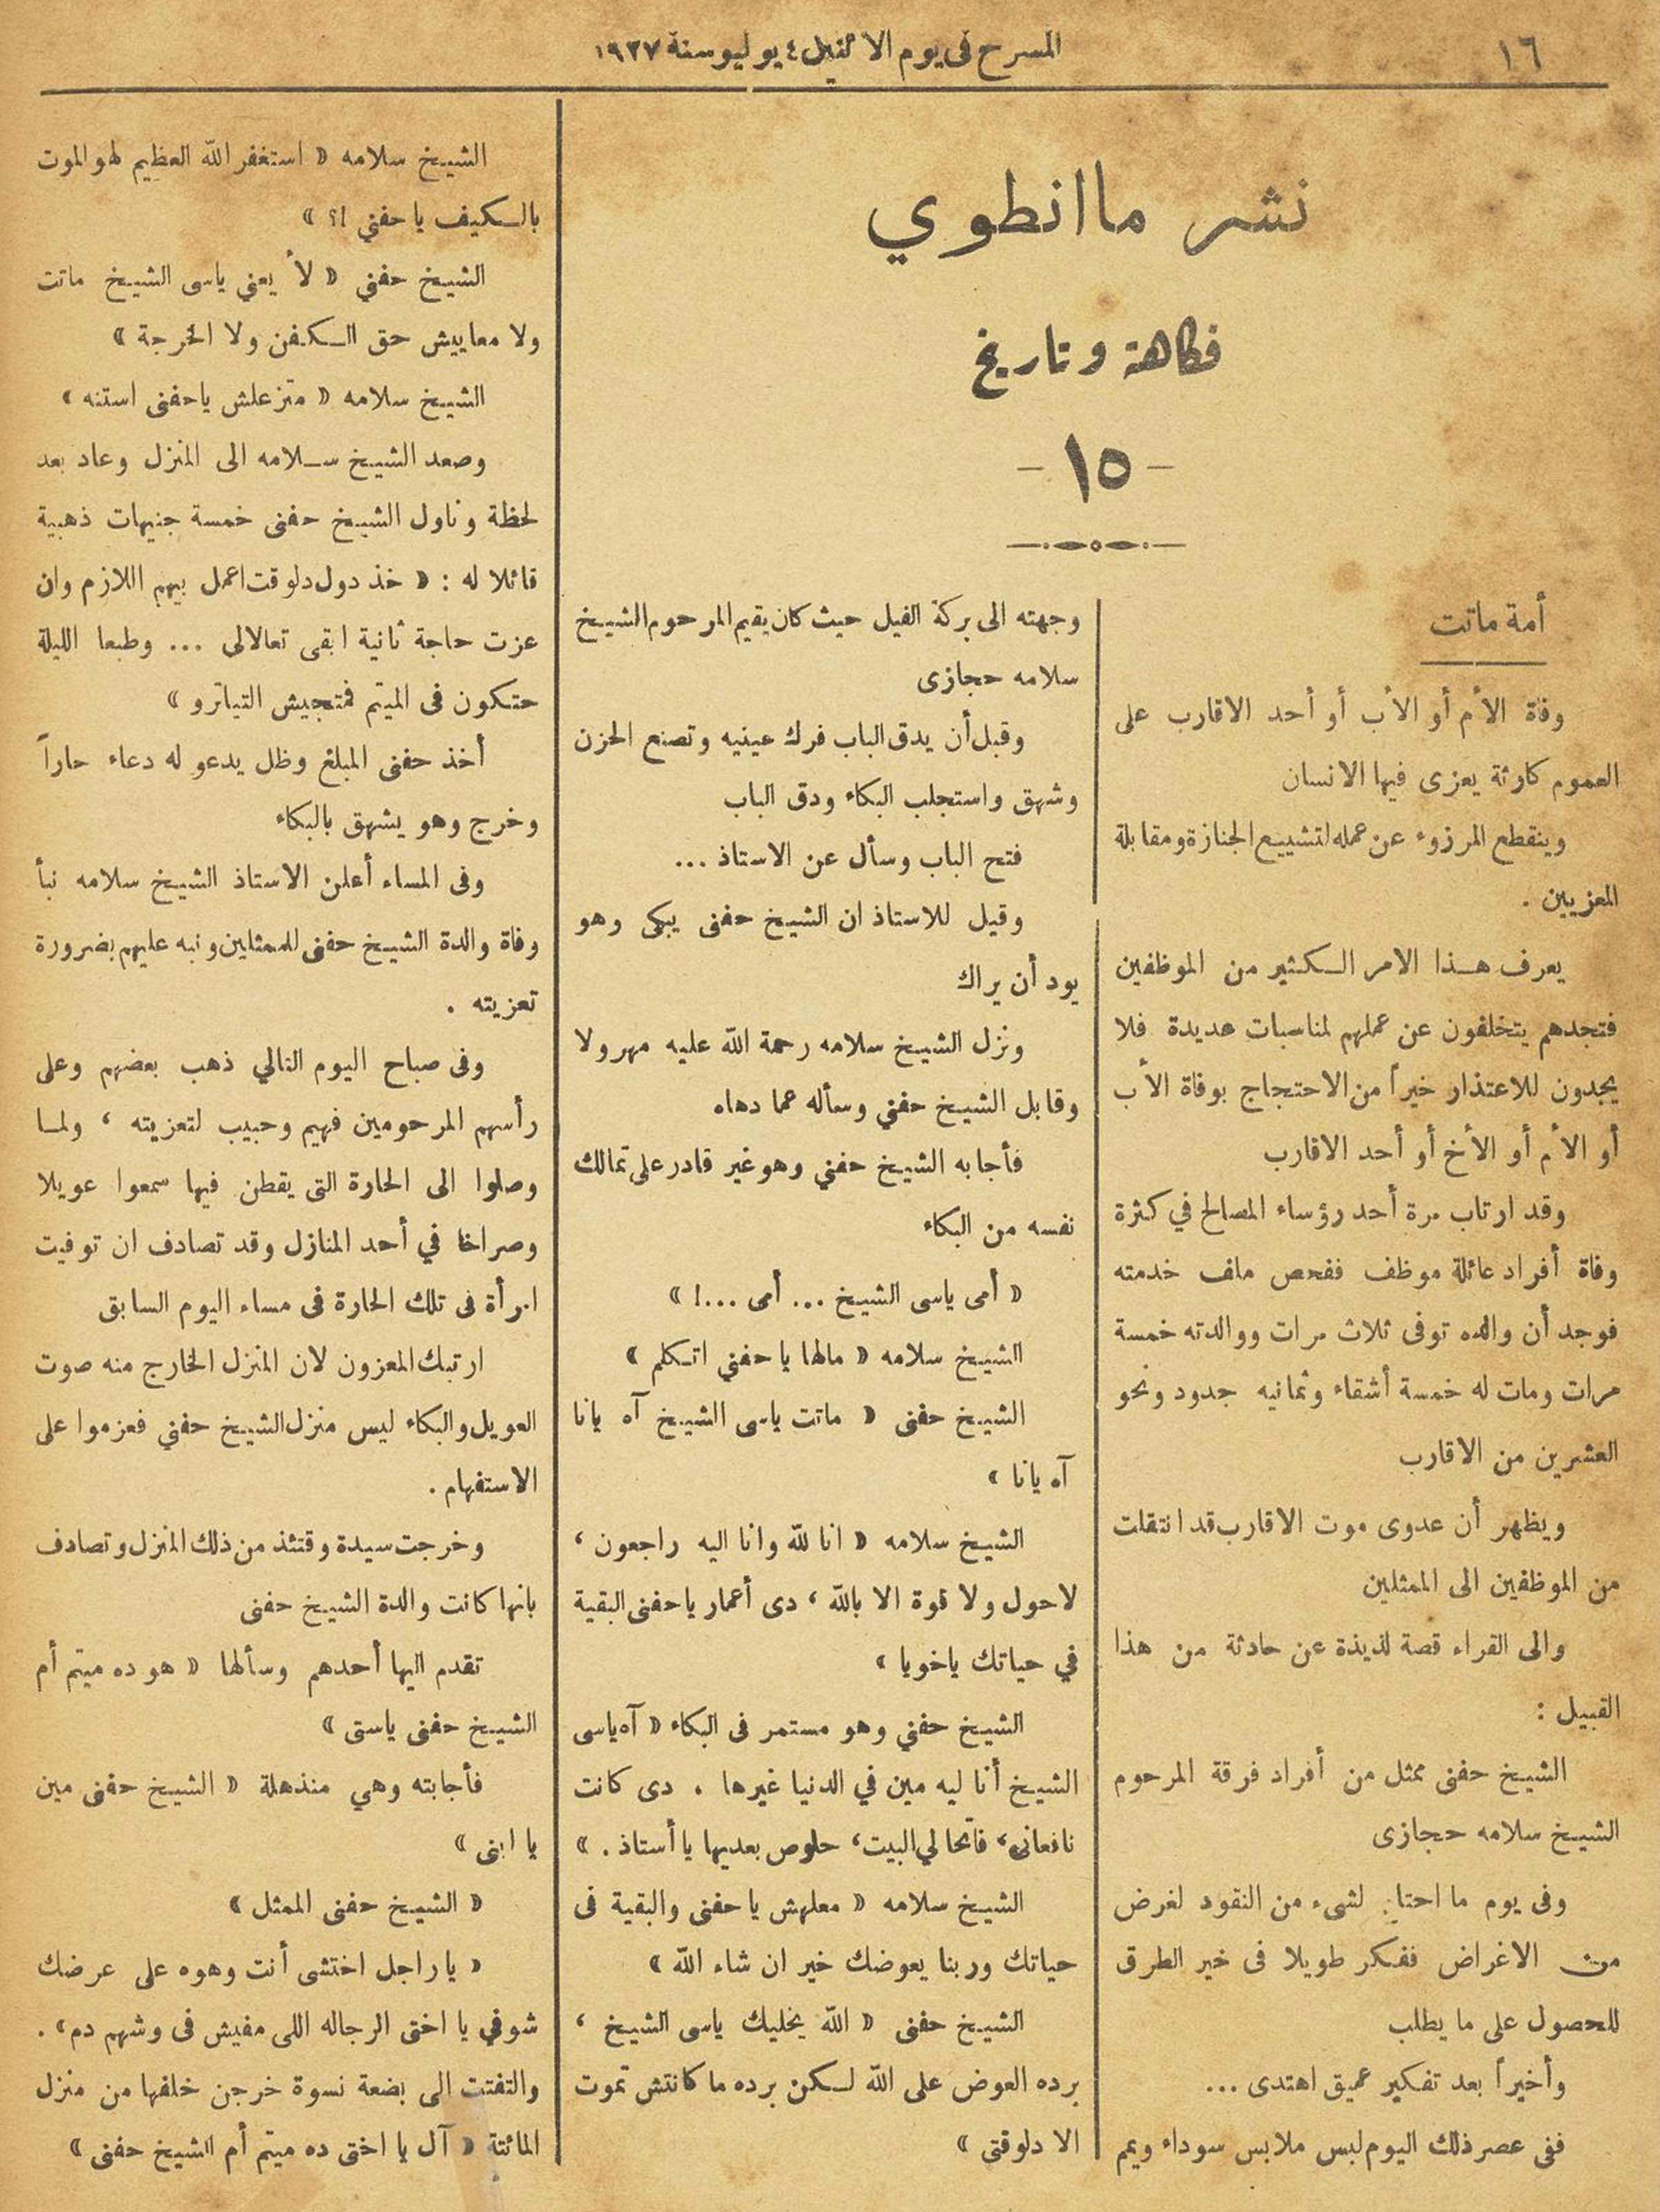 ١٦
المسرح في يوم الاثنين ٤ يوليو سنة ١٩٢٧
نشر ما انطوي
فكاهة وتاريخ
- ١٥ -
أمة ماتت
وفاة الأم أو الأب أو أحد الاقارب على
العموم كارثة يعزى فيها الانسان
وينقطع المرزوء عن عمله لتشييع الجنازة ومقابلة
المعزيين .
يعرف هذا الامر الكثير من الموظفين
فتجدهم يتخلفون عن عملهم لمناسبات عديدة فلا
يجدون للاعتذار خيراً من الاحتجاج بوفاة الأب
أو الأم أو الأخ أو أحد الاقارب
وقد ارتاب مرة أحد رؤساء المصالح في كثرة
وفاة أفراد عائلة موظف ففحص ملف خدمته
فوجد أن والده توفى ثلاث مرات ووالدته خمسة
مرات ومات له خمسة أشقاء وثمانيه جدود ونحو
العشرين من الاقارب
ويظهر أن عدوى موت الاقارب قد انتقلت
من الموظفين الى الممثلين
والى القراء قصة لذيذة عن حادثة من هذا
القبيل :
الشيخ حفنى ممثل من أفراد فرقة المرحوم
الشيخ سلامه حجازى
وفى يوم ما احتاج لشىء من النقود لغرض
من الاغراض ففكر طويلا فى خير الطرق
للحصول على ما يطلب
وأخيراً بعد تفكير عميق اهتدى ...
ففى عصر ذلك اليوم لبس ملابس سوداء ويمم
وجهته الى بركة الفيل حيث كان يقيم المرحوم الشيخ
سلامه حجازى
وقبل أن يدق الباب فرك عينيه وتصنع الحزن
وشهق واستجلب البكاء ودق الباب
فتح الباب وسأل عن الاستاذ ...
وقيل للاستاذ ان الشيخ حفنى يبكى وهو
يود أن يراك
ونزل الشيخ سلامه رحمة الله عليه مهرولا
وقابل الشيخ حفني وسأله عما دهاه
فأجابه الشيخ حفني وهو غير قادر على تمالك
نفسه من البكاء
« أمى ياسى الشيخ ... أمى ...! »
الشيخ سلامه « مالها يا حفني اتكلم »
الشيخ حفنى « ماتت ياسى الشيخ آه يانا
آه يانا »
الشيخ سلامه « انا لله وانا اليه راجعون ،
لاحول ولا قوة الا بالله ، دى أعمار يا حفنى البقية
في حياتك ياخويا »
الشيخ حفني وهو مستمر فى البكاء « آه ياسى
الشيخ أنا ليه مين في الدنيا غيرها . دى كانت
نافعانى، فاتحالي البيت، حلوص بعديها يا أستاذ . »
الشيخ سلامه « معلهش يا حفنى والبقية فى
حياتك وربنا يعوضك خير ان شاء الله »
الشيخ حفنى « الله يخليك ياسى الشيخ ،
برده العوض على الله لكن برده ما كانتش تموت
الا دلوقتى »
الشيخ سلامه « استغفر الله العظيم لهو الموت
بالكيف يا حفني !؟ »
الشيخ حفني « لأ يعني ياسى الشيخ ماتت
ولا معاييش حق الكفن ولا الخرجة »
الشيخ سلامه « متزعلش ياحفنى استنه »
وصعد الشيخ سلامه الى المنزل وعاد بعد
لحظة وناول الشيخ حفنى خمسة جنيهات ذهبية
قائلا له : « خذ دول دلوقت اعمل بيهم اللازم وان
عزت حاجة ثانية ابقى تعالالى ... وطبعا الليلة
حتكون فى الميتم فمتجيش التياترو »
أخذ حفنى المبلغ وظل يدعو له دعاء حاراً
وخرج وهو يشهق بالبكاء
وفى المساء أعلن الاستاذ الشيخ سلامه نبأ
وفاة والدة الشيخ حفنى للممثلين ونبه عليهم بضرورة
تعزيته .
وفى صباح اليوم التالي ذهب بعضهم وعلى
رأسهم المرحومين فهيم وحبيب لتعزيته ، ولما
وصلوا الى الحارة التى يقطن فيها سمعوا عويلا
وصراخا في أحد المنازل وقد تصادف ان توفيت
امرأة فى تلك الحارة فى مساء اليوم السابق
ارتبك المعزون لان المنزل الخارج منه صوت
العويل والبكاء ليس منزل الشيخ حفني فعزموا على
الاستفهام .
وخرجت سيدة وقتئذ من ذلك المنزل وتصادف
بانها كانت والدة الشيخ حفنى
تقدم اليها أحدهم وسألها « هو ده ميتم أم
الشيخ حفنى ياستى »
فأجابته وهي منذهلة « الشيخ حفنى مين
يا ابنى »
« الشيخ حفنى الممثل »
« يا راجل اختشى أنت وهوه على عرضك
شوفي يا اختى الرجاله اللى مفيش فى وشهم دم» .
والتفتت الى بضعة نسوة خرجن خلفها من منزل
المائتة « آل يا اختى ده ميتم أم الشيخ حفنى »